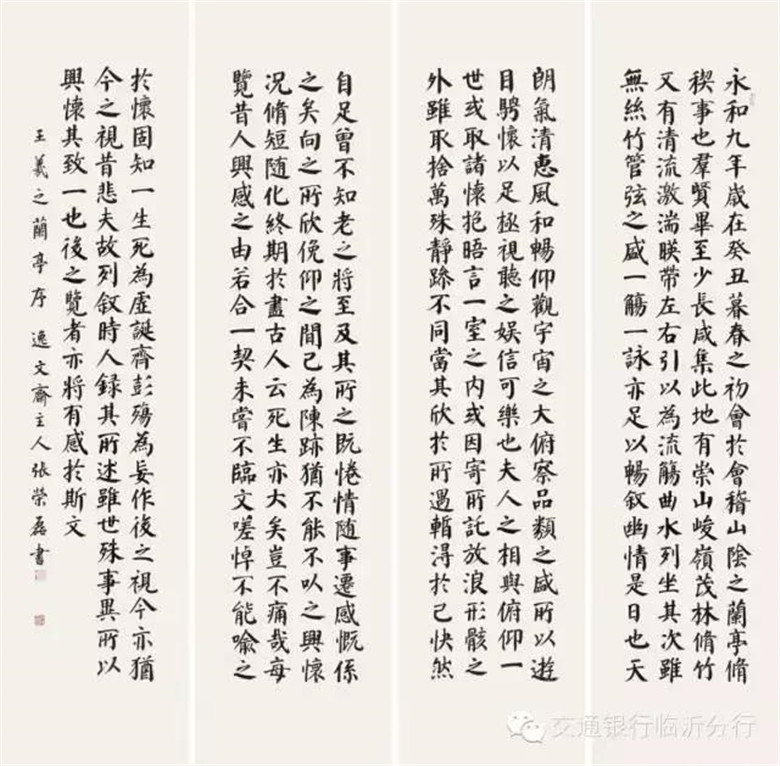 永和九年歲在癸丑暮春之初會於會稽山陰之蘭亭脩
稧事也羣賢畢至少長咸集此地有崇山峻嶺茂林脩竹
又有清流激湍暎帶左右引以為流觴曲水列坐其次雖
無絲竹管弦之盛一觴一詠亦足以暢敘幽情是日也天
朗氣清惠風和暢仰觀宇宙之大俯察品類之盛所以遊
目騁懷以足極視聽之娛信可樂也夫人之相與俯仰一
世或取諸懷抱晤言一室之內或因寄所託放浪形骸之
外雖取捨萬殊靜躁不同當其欣於所遇暫得於己快然
自足曾不知老之將至及其所之既惓情隨事遷感慨係
之矣向之所欣俛仰之間已為陳跡猶不能不以之興懷
況脩短隨化終期於盡古人云死生亦大矣豈不痛哉每
覽昔人興感之由若合一契未嘗不臨文嗟悼不能喻之
於懷固知一生死為虛誕齊彭殤為妄作後之視今亦猶
今之視昔悲夫故列敘時人録其所述雖世殊事異所以
興懷其致一也後之覽者亦將有感於斯文
王羲之蘭亭序 逸文齋主人張榮磊書
交通银行临沂分行